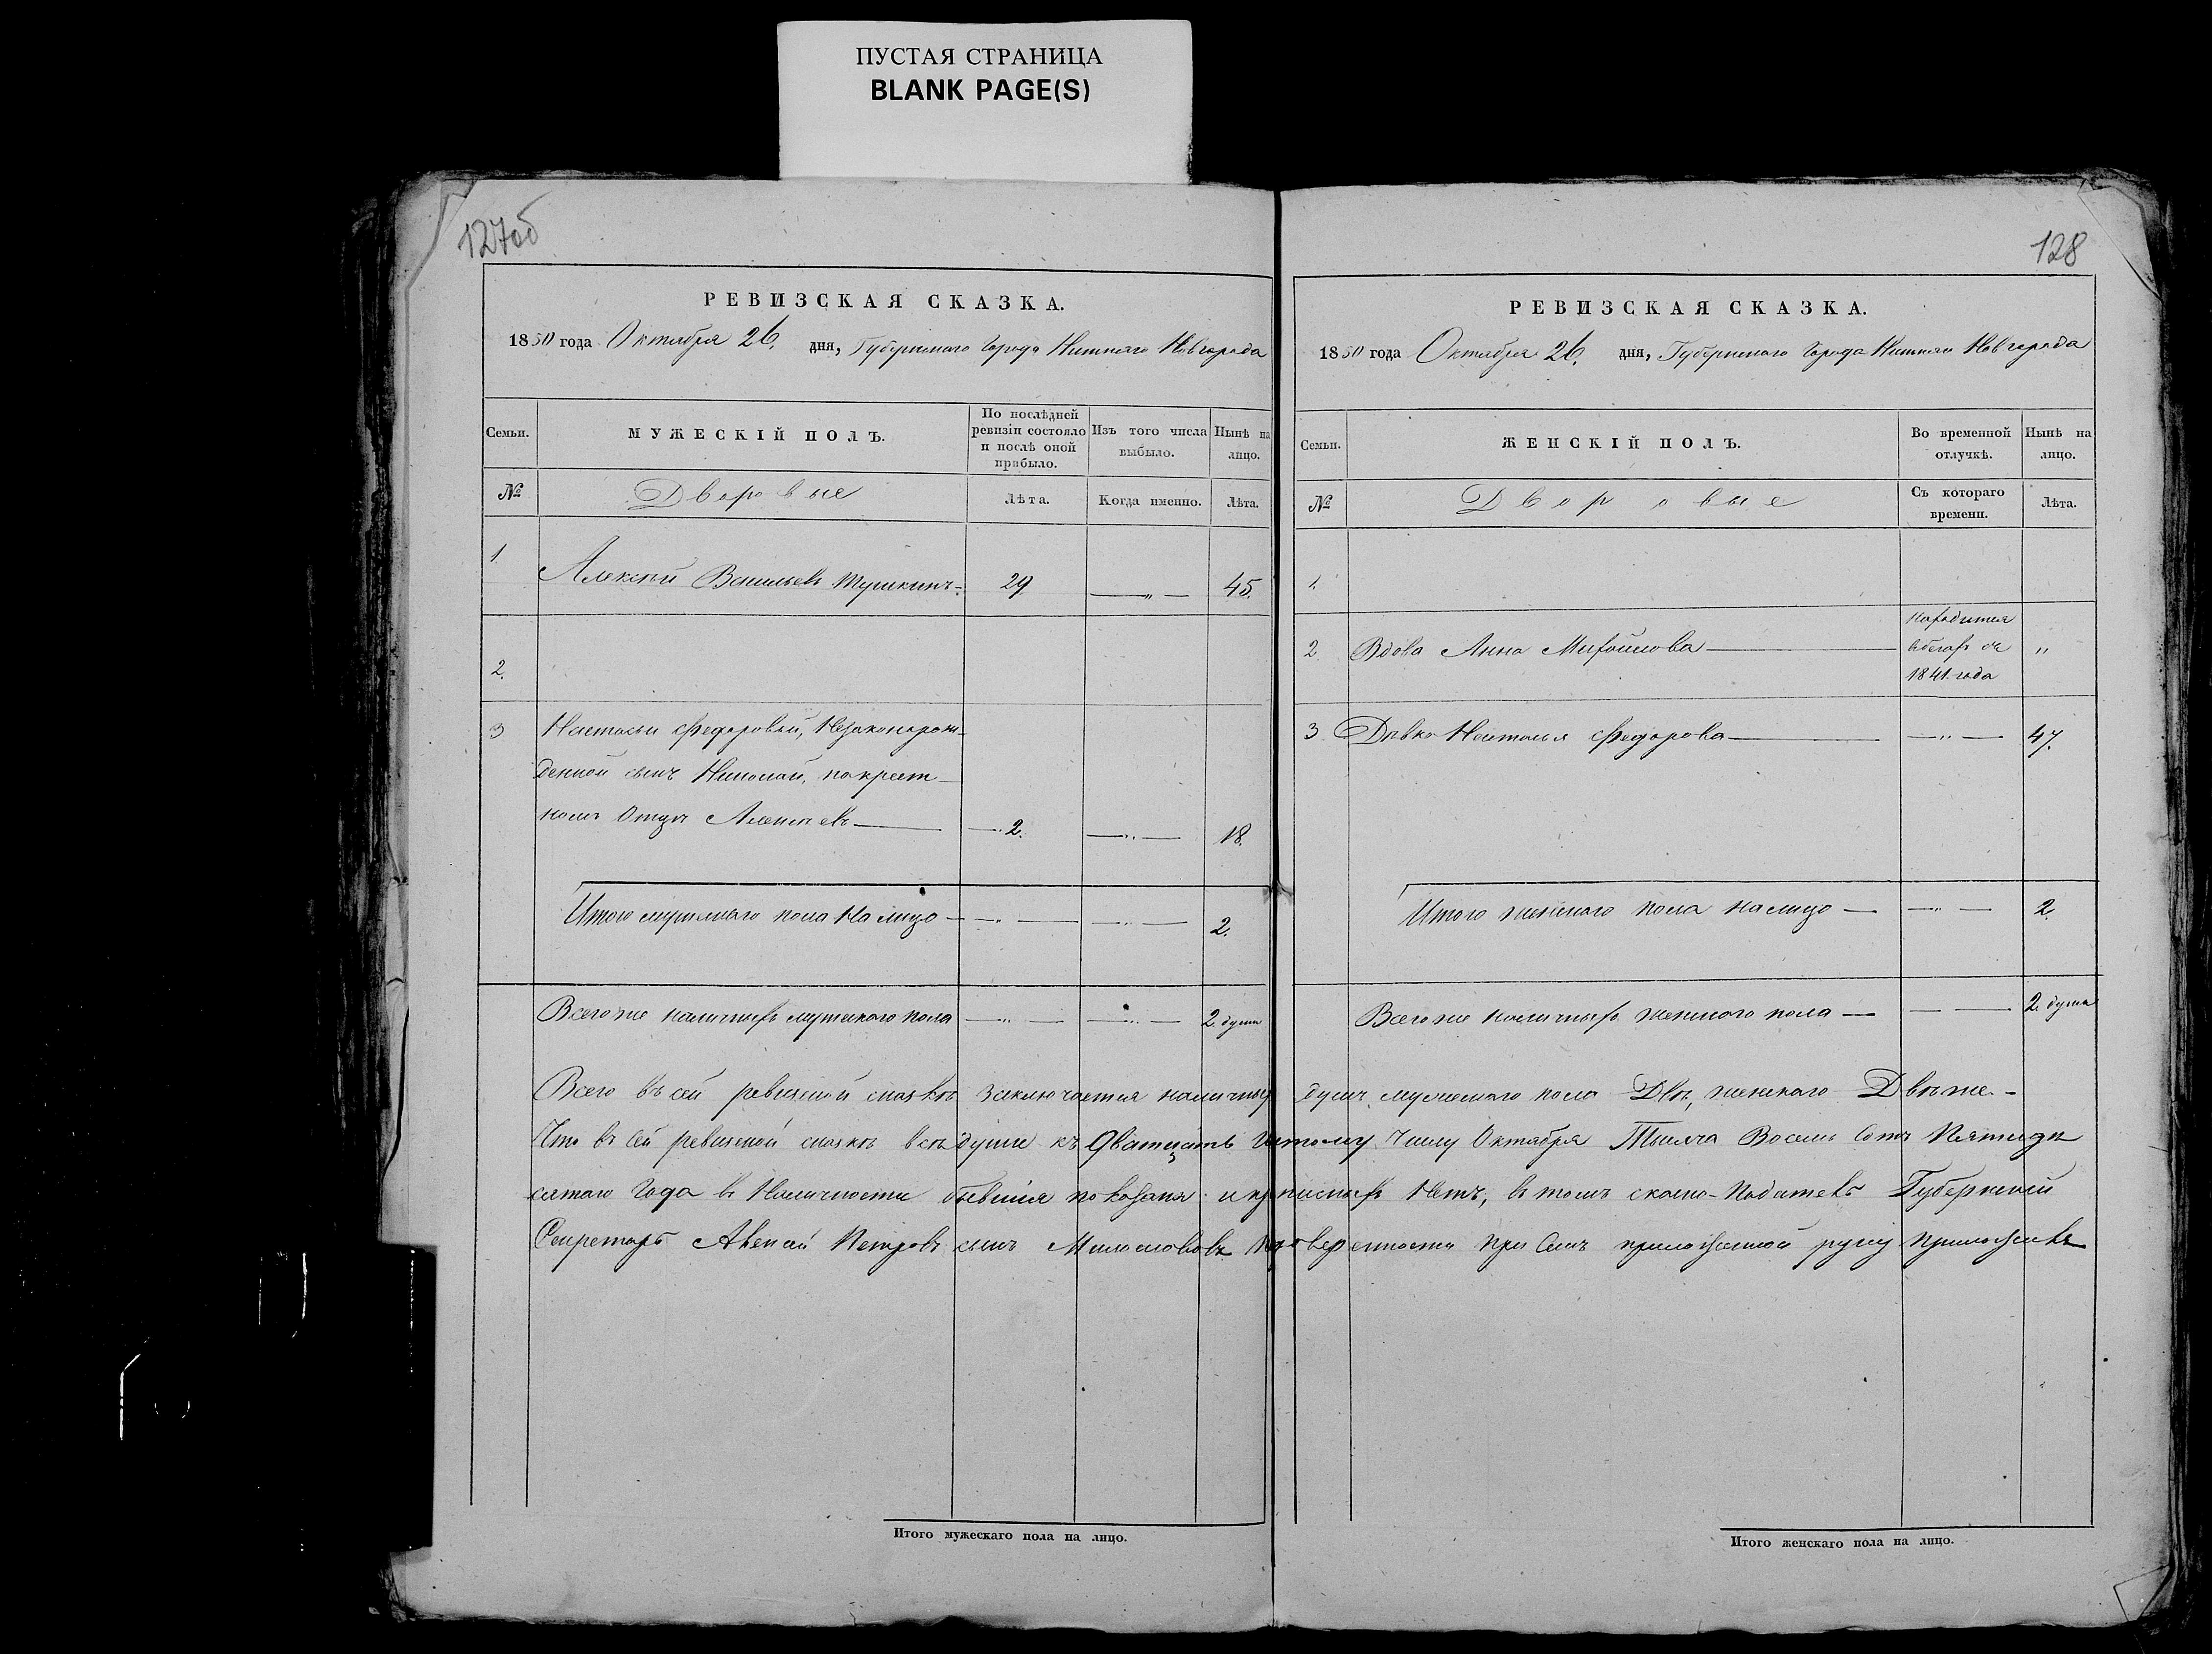 ПУСТАЯ СТРАНИЦА
BLANK PAGE(S)
127об
РЕВИЗСКАЯ СКАЗКА.
1850 года Октября 26. дня, Губернскаго Города Нижняго Новгорода
Семьи.
МУЖЕСКІЙ ПОЛЪ.
По послѣдней ревизіи состояло и послѣ оной прибыло.
Изъ того числа выбыло.
Нынѣ на лицо.
№
Дворовые
Лѣта.
Когда именно.
Лѣта.
1 Алексѣй Васильевъ Тушкинъ 29 — „ — 45.
2.
3 Настасьи Федоровой, Незаконорож-
денной сынъ Николай, по крест-
номъ Отцѣ Алексѣевъ — 2. — „ — 18.
Итого мужескаго пола На лицо — „ — — „ — 2.
Всего же наличныхъ мужескаго пола — „ — — „ — 2. души
128
РЕВИЗСКАЯ СКАЗКА.
1850 года Октября 26. дня, Губернскаго Города Нижняго Новгорода
Семьи.
ЖЕНСКІЙ ПОЛЪ.
Во временной отлучкѣ.
Нынѣ на лицо.
№
Дворовые
Съ котораго времени.
Лѣта.
1.
2 Вдова Анна Михайлова — находится
в бегахъ съ „
1841. года
3 Дѣвка Настасья Федорова — — „ — 47.
Итого женскаго пола на лицо — — „ — 2.
Всего же наличныхъ женскаго пола — — — 2. души
Всего въ сей ревизской сказкѣ заключается наличныхъ душъ мужескаго пола Двѣ, женскаго Двѣ же. -
Что въ сей ревизской сказкѣ всѣ души къ Дватцать шестому Числу Октября Тысяча Восемь Сотъ Пятиде
сятаго Года в Наличности бывшія показаны и прописныхъ Нетъ, в томъ сказко-Подателъ Губернской
Секретарь Петровъ сынъ по доверенности при Семъ приложенной руку приложилъ
Итого мужескаго пола на лицо.
Итого женскаго пола на лицо.